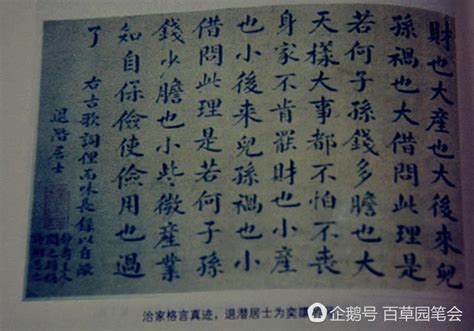 財也大產也大後來兒
孫禍也大借問此理是
若何子孫錢多膽也大
天樣大事都不怕不喪
身家不肯罷財也小產
也小後來兒孫禍也小
借問此理是若何子孫
錢少膽也小些微產業
知自保儉使儉用也過
了
右古歌詞俚而味長錄以自儆
退潛居士
治家格言真迹,退潜居士为奕譞
企鹅号 百草园笔会